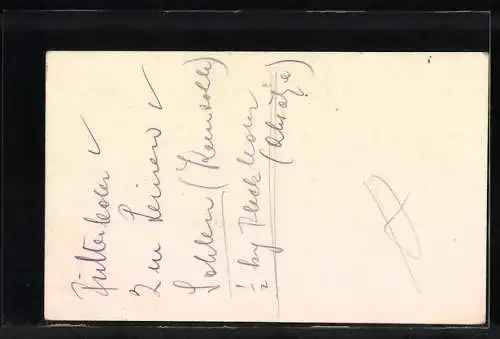 Futterleder ✓
2 m Leinen ✓
Sohlen (Kernsohle)
½ kg Fleckleder
(Absätze)